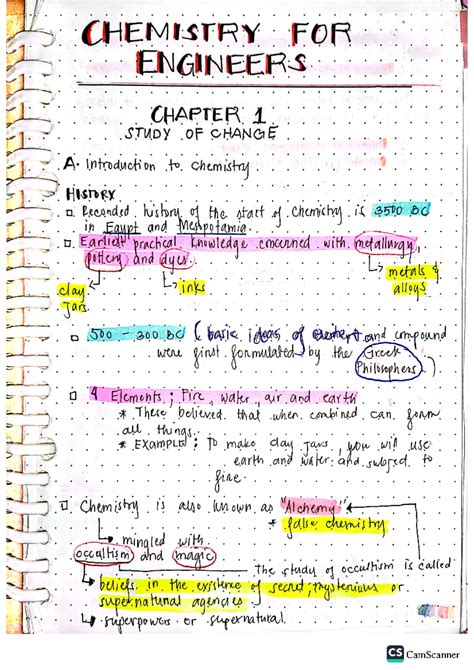 CHEMISTRY FOR
ENGINEERS
CHAPTER 1
STUDY OF CHANGE
A. Introduction to Chemistry
HISTORY
Recorded history of the start of Chemistry is 3500 BC
in Egypt and Mesopotamia.
Earliest practical knowledge concerned with metallurgy,
pottery and dyes.
clay
jars
inks
metals &
alloys
500 - 300 BC ( basic ideas of element and compound
were first formulated by the Greek
Philosophers )
4 Elements ; Fire, water, air and earth
* These believed that when combined can form
all things.
* EXAMPLE ; To make clay jars, you will use
earth and water and subject to
fire
Chemistry is also known as "Alchemy"
* false chemistry
mingled with
occultism and magic
The study of occultism is called
beliefs in the existence of secret, mysterious or
supernatural agencies.
superpowers or supernatural.
CS CamScanner